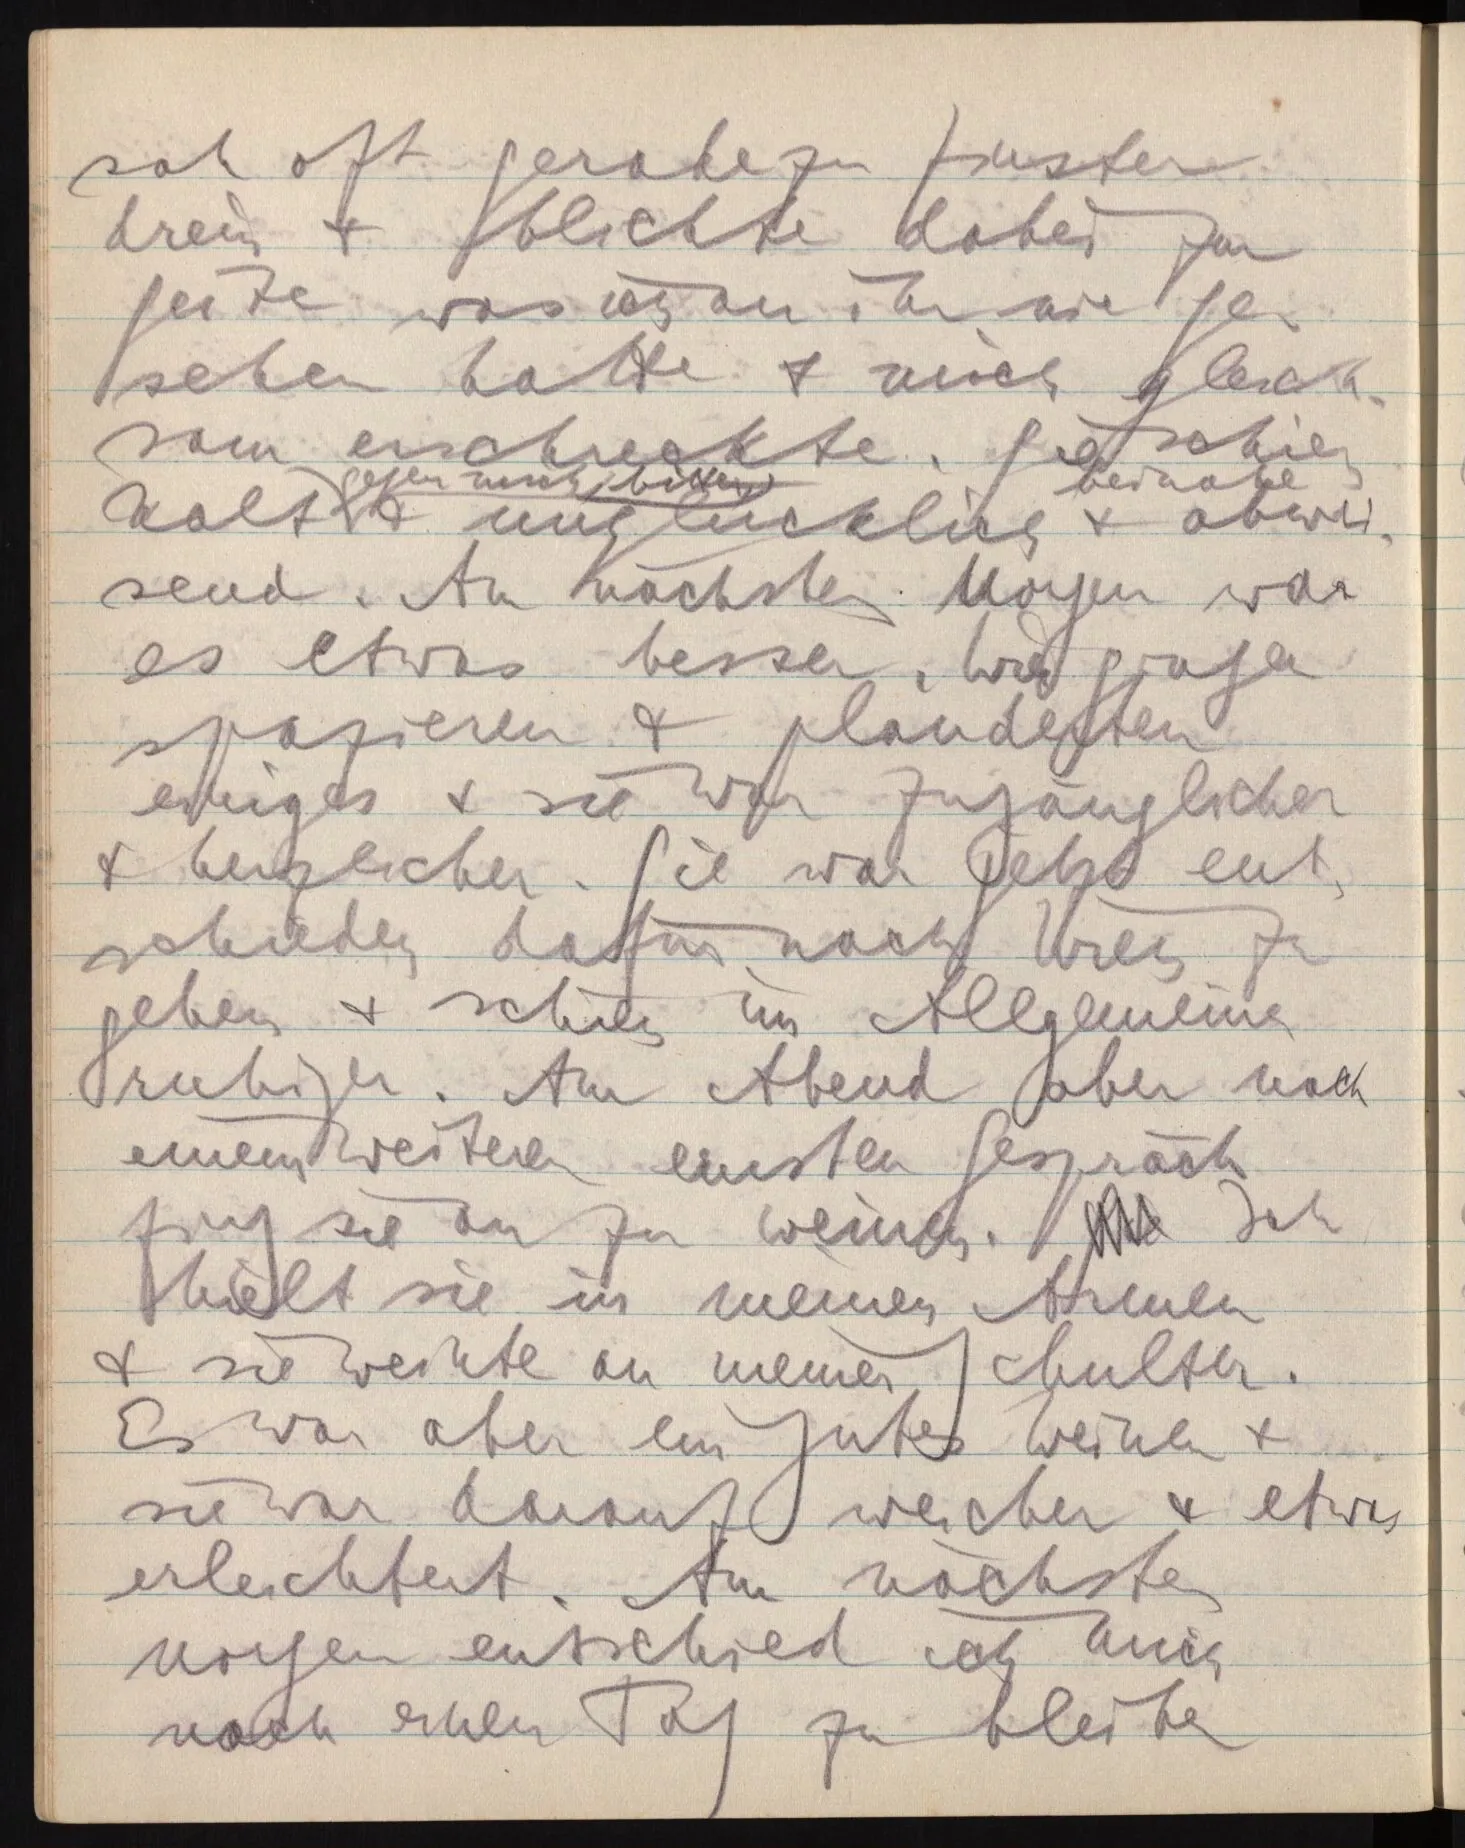 sah oft geradezu finster
drein & blickte dabei zur
Seite was ich an ihr nie ge-
sehen hatte & mich gleich-
sam erschreckte. Sie schien
gegen mich bitter beinahe
kalt & unglücklich & abwei-
send. Am nächsten Morgen war
es etwas besser. Wir gingen
spazieren & plauderten
einiges & sie war zugänglicher
& herzlicher. Sie war jetzt ent-
schieden dafür nach Wien zu
gehen & schien im Allgemeinen
ruhiger. Am Abend aber nach
einem weiteren ernsten Gespräch
fing sie an zu weinen. Ich
hielt sie in meinen Armen
& sie weinte an meiner Schulter.
Es war aber ein gutes Weinen &
sie war darauf weicher & etwas
erleichtert. Am nächsten
Morgen entschied ich mich
noch einen Tag zu bleiben